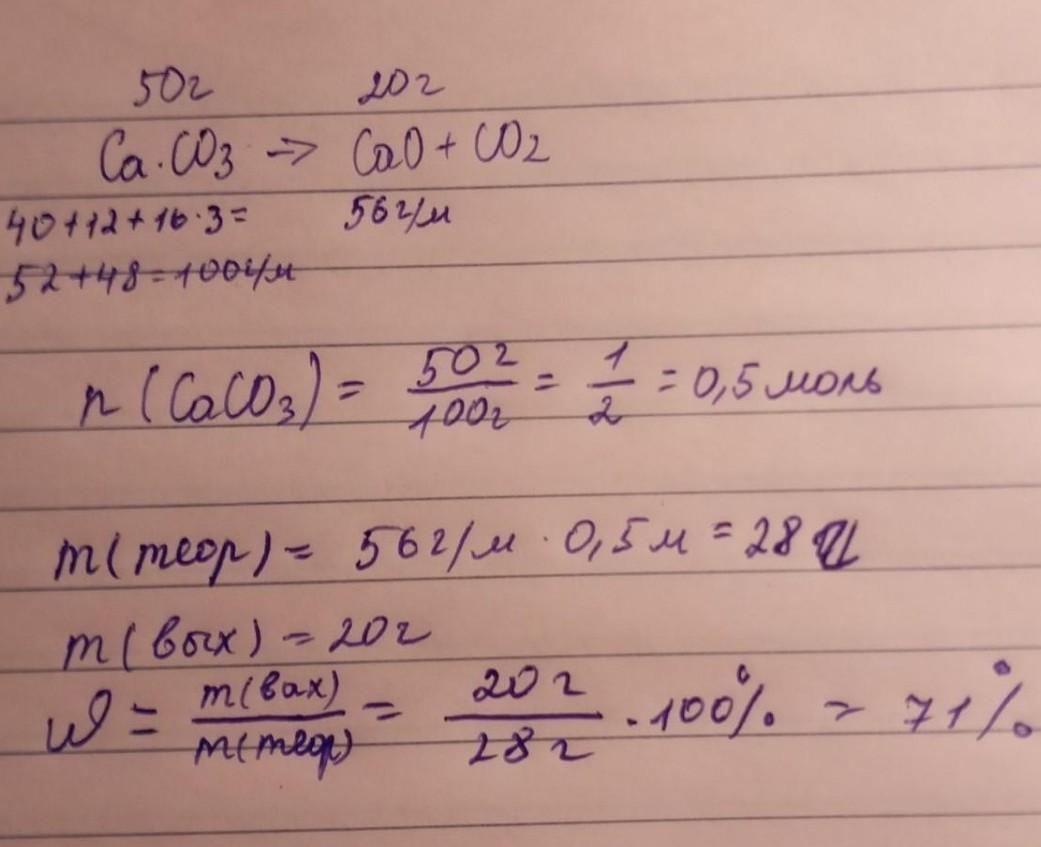 50г 20г
Ca·CO₃ → CaO + CO₂
40+12+16·3= 56г/м
52+48=100г/м
n(CaCO₃) = 50г/100г = 1/2 = 0,5 моль
m(теор) = 56г/м · 0,5м = 28г
m(вых) = 20г
W = m(вах)/m(теор) = 20г/28г · 100% = 71%